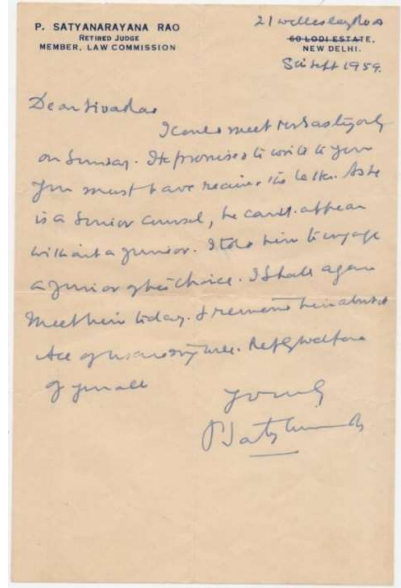 P. SATYANARAYANA RAO
RETIRED JUDGE
MEMBER, LAW COMMISSION
21 Wellesley Road
60 LODI ESTATE,
NEW DELHI.
Sept 1959.
Dear Siva Rao
I could meet only
on Sunday. He promised to write to you
you must have received his letter. As he
is a Senior counsel, he can't appear
without a junior. I told him to engage
a junior of his choice. I shall again
meet him today. & remind him about
welfare
of you all
Yours